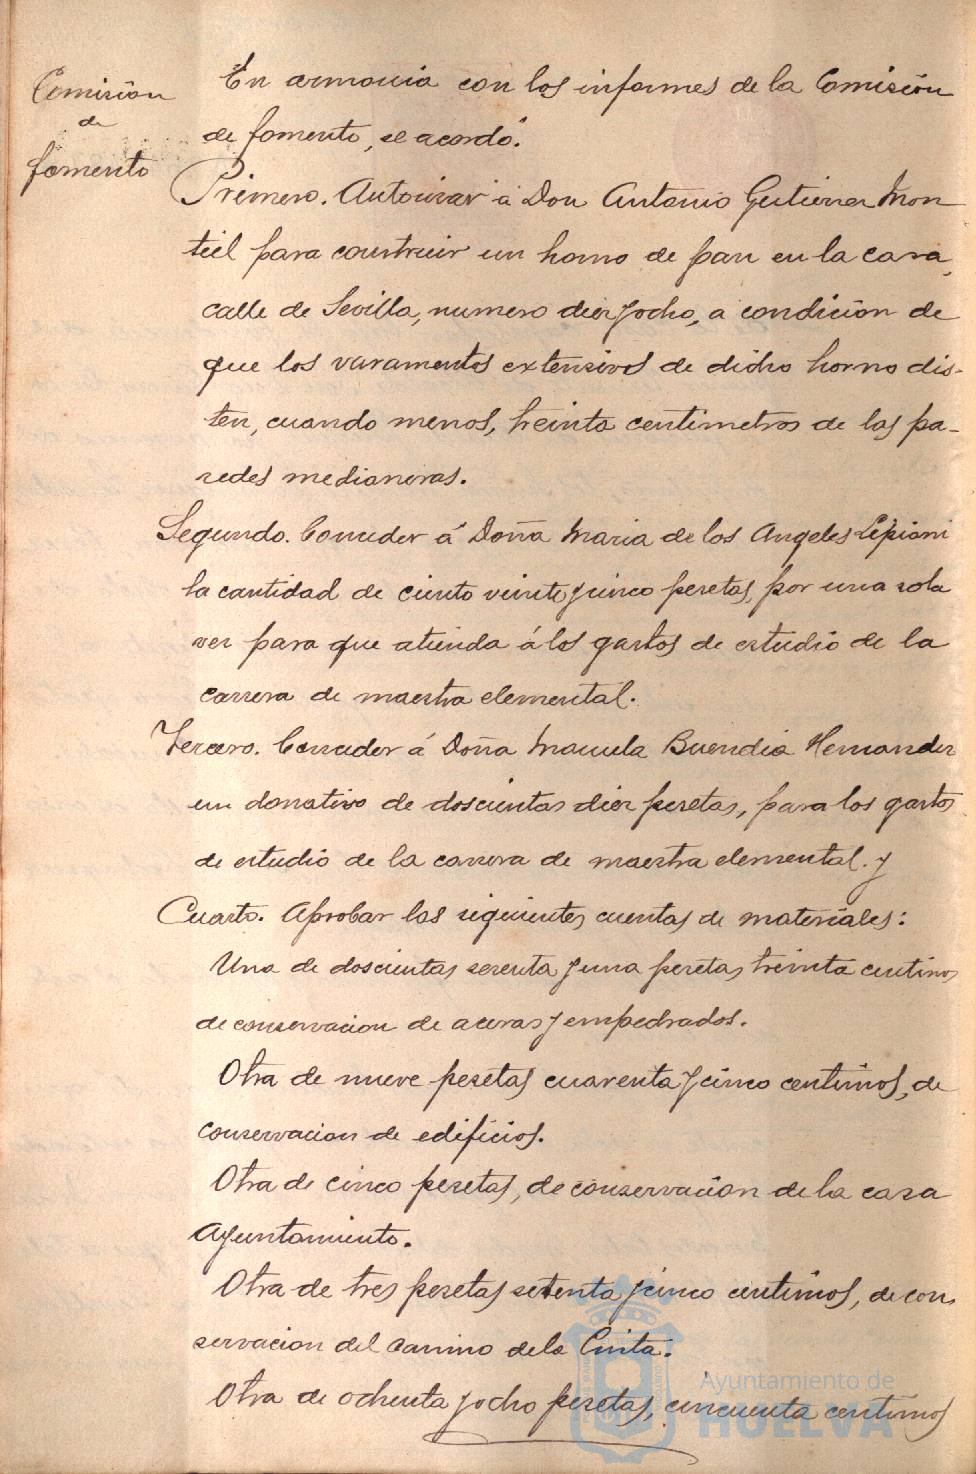 Comisión
de
fomento
En armonia con los informes de la Comisión
de fomento, se acordó.
Primero. Autorizar á Don Antonio Gutierrez Mon
tiel para construir un horno de pan en la casa,
calle de Sevilla, numero diez y ocho, a condición de
que los vaxamentos extensivos de dicho horno dis-
ten, cuando menos, treinta centimetros de las pa-
redes medianeras.
Segundo. Conceder á Doña Maria de los Angeles Lepiani
la cantidad de ciento veinte y cinco pesetas, por una sola
vez para que atienda á los gastos de estudio de la
carrera de maestra elemental.
Tercero. Conceder á Doña Manuela Buendia Hernandez
un donativo de doscientas diez pesetas, para los gastos
de estudio de la carrera de maestra elemental. y
Cuarto. Aprobar las siguientes cuentas de materiales:
Una de doscientas sesenta y una pesetas treinta centimos
de conservacion de aceras y empedrados.
Otra de nueve pesetas cuarenta y cinco centimos, de
conservacion de edificios.
Otra de cinco pesetas, de conservación de la casa
Ayuntamiento.
Otra de tres pesetas setenta y cinco centimos, de con
servacion del camino de la Cinta.
Otra de ochenta y ocho pesetas, cincuenta centimos
Ayuntamiento de
HUELVA